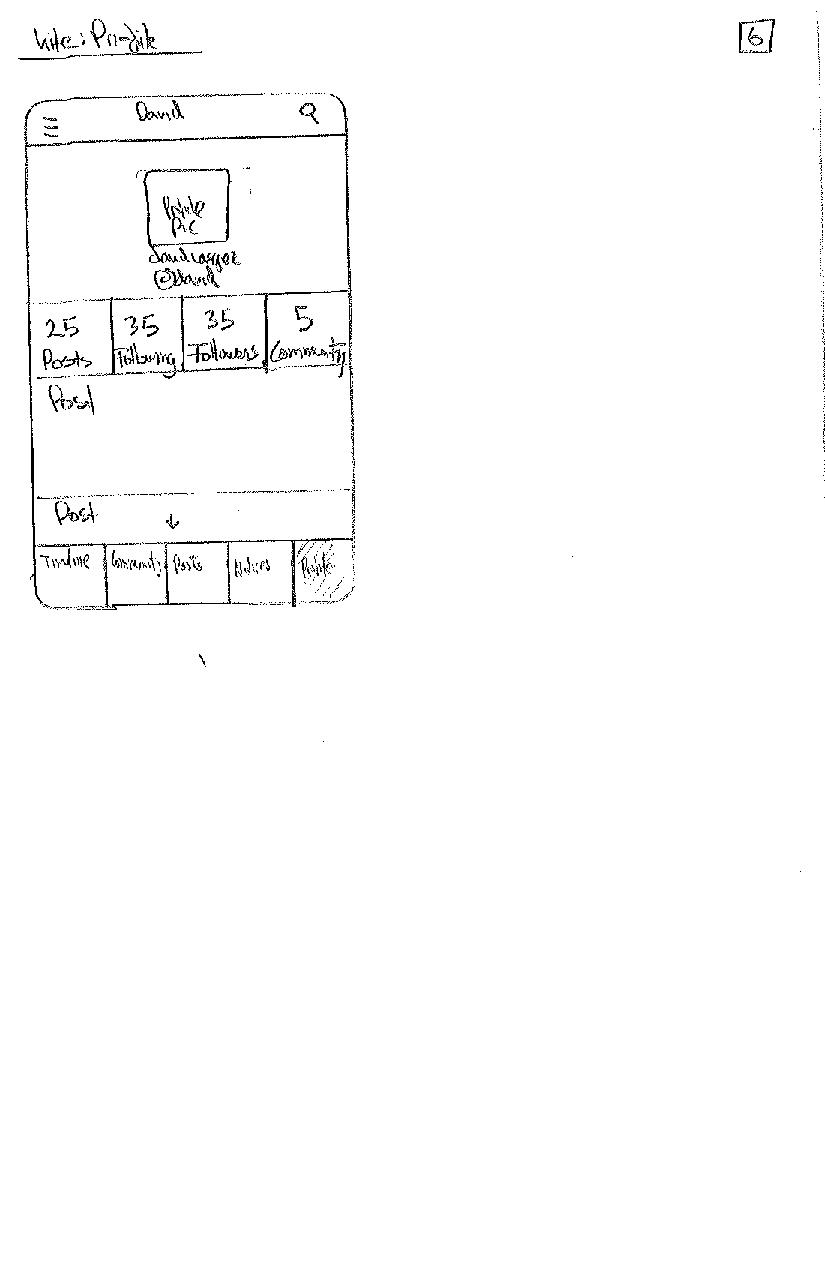 : Profile
6
David
Profile
Pic
@David
25
Posts
35
Following
35
Followers
5
Community
Post
Post
Timeline
Community
Posts
Notices
Profile